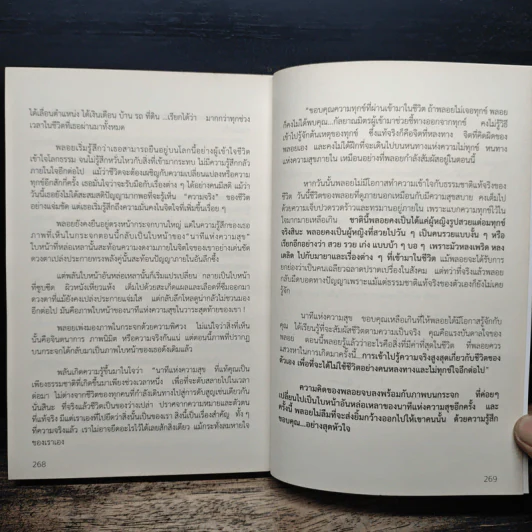 ได้เลื่อนตำแหน่ง ได้เงินเดือน บ้าน รถ ที่ดิน ...เรียกได้ว่า มากกว่าทุกช่วง
เวลาในชีวิตที่เธอผ่านมาทั้งหมด
พลอยเริ่มรู้สึกว่าเธอสามารถยืนอยู่บนโลกนี้อย่างผู้เข้าใจชีวิต
เข้าใจโลกธรรม จนไม่รู้สึกหวั่นไหวกับสิ่งที่เข้ามากระทบ ไม่มีความรู้สึกกลัว
ภายในใจอีกต่อไป แม้ว่าชีวิตจะต้องเผชิญกับความเปลี่ยนแปลงหรือความ
ทุกข์อีกสักกี่ครั้ง เธอมั่นใจว่าจะรับมือกับเรื่องต่าง ๆ ได้อย่างคนมีสติ แม้ว่า
วันนี้เธอยังไม่ได้สะสมสติปัญญามากพอที่จะรู้เห็น "ความจริง" ของชีวิต
อย่างแจ่มชัด แต่เธอรู้สึกถึงความมั่นคงในจิตใจที่เพิ่มขึ้นเรื่อย ๆ
พลอยยังคงยืนอยู่ตรงหน้ากระจกบานใหญ่ แต่ในความรู้สึกของเธอ
ภาพที่เห็นในกระจกตอนนี้กลับเป็นใบหน้าของ"นาทีแห่งความสุข"
ใบหน้าที่หล่อเหลานั้นสะท้อนความงดงามภายในจิตใจของเขาอย่างเด่นชัด
ดวงตาเปล่งประกายทรงพลังคู่นี้สะท้อนปัญญาภายในอันลึกซึ้ง
แต่พลันใบหน้าอันหล่อเหลานั้นก็เริ่มแปรเปลี่ยน กลายเป็นใบหน้า
ที่ซูบซีด ผิวหนังเหี่ยวแห้ง เต็มไปด้วยสะเก็ดแผลและเลือดที่ซึมออกมา
ดวงตาที่แม้ยังคงเปล่งประกายแจ่มใส แต่กลับลึกโหลดูน่ากลัวไม่ชวนมอง
อีกต่อไป มันคือภาพใบหน้าของนาทีแห่งความสุขในวาระสุดท้ายของเขา !
พลอยเพ่งมองภาพในกระจกด้วยความพิศวง ไม่แน่ใจว่าสิ่งที่เห็น
นั้นคือจินตนาการ ภาพนิมิต หรือความจริงกันแน่ แต่ตอนนี้ภาพที่ปรากฏ
บนกระจกได้กลับมาเป็นภาพใบหน้าของเธอดังเดิมแล้ว
พลันเกิดความรู้ขึ้นมาในใจว่า "นาทีแห่งความสุข ที่แท้คุณเป็น
เพียงธรรมชาติที่เกิดขึ้นมาเพียงช่วงเวลาหนึ่ง เพื่อที่จะดับสลายไปในเวลา
ต่อมา ไม่ต่างจากชีวิตของทุกคนที่กำลังเดินทางไปสู่การดับสูญเช่นเดียวกัน
นั่นสินะ ที่จริงแล้วชีวิตเป็นของว่างเปล่า ปราศจากความหมายและตัวตน
ที่แท้จริง มีแต่เราเองที่ไปยึดว่าสิ่งนั้นเป็นของเรา สิ่งนี้เป็นเรื่องสำคัญ ทั้ง ๆ
ที่ความจริงแล้ว เราไม่อาจยึดอะไรไว้ได้เลยสักสิ่งเดียว แม้กระทั่งลมหายใจ
ของเราเอง
268
"ขอบคุณความทุกข์ที่ผ่านเข้ามาในชีวิต ถ้าพลอยไม่เจอทุกข์ พลอย
ก็คงไม่ได้พบคุณ...กัลยาณมิตรผู้เข้ามาช่วยชี้ทางออกจากทุกข์ คงไม่รู้วิธี
เข้าไปรู้จักต้นเหตุของทุกข์ ซึ่งแท้จริงก็คือจิตที่หลงทาง จิตที่คิดผิดของ
พลอยเอง และคงไม่ได้ฝึกที่จะเดินไปบนหนทางแห่งความไม่ทุกข์ หนทาง
แห่งความสุขภายใน เหมือนอย่างที่พลอยกำลังสัมผัสอยู่ในตอนนี้
หากวันนั้นพลอยไม่มีโอกาสทำความเข้าใจกับธรรมชาติแท้จริงของ
ชีวิต วันนี้ชีวิตของพลอยที่ดูภายนอกเหมือนกับมีความสุขสบาย คงเต็มไป
ด้วยความเจ็บปวดรวดร้าวและทรมานอยู่ภายใน เพราะแบกความทุกข์ไว้ใน
ใจมากมายเหลือเกิน ชาตินี้พลอยคงเป็นได้แค่ผู้หญิงรูปสวยแต่อมทุกข์
จริงสินะ พลอยคงเป็นผู้หญิงที่สวยไปวัน ๆ เป็นคนรวยแบบงั้น ๆ หรือ
เรียกอีกอย่างว่า สวย รวย เก่ง แบบบ้า ๆ บอ ๆ เพราะมัวหลงเพริด หลง
เตลิด ไปกับมายาและเรื่องต่าง ๆ ที่เข้ามาในชีวิต แม้พลอยจะได้รับการ
ยกย่องว่าเป็นคนเฉลียวฉลาดปราดเปรื่องในสังคม แต่ทว่าที่จริงแล้วพลอย
กลับมืดบอดทางปัญญาเพราะแม้แต่ธรรมชาติแท้จริงของตัวเองก็ยังไม่เคย
รู้จัก
นาทีแห่งความสุข ขอบคุณเหลือเกินที่ให้พลอยได้มีโอกาสรู้จักกับ
คุณ ได้เรียนรู้ที่จะสัมผัสชีวิตตามความเป็นจริง คุณคือแรงบันดาลใจของ
พลอย ตอนนี้พลอยรู้แล้วว่าอะไรคือสิ่งที่มีค่าที่สุดในชีวิต ที่พลอยควร
แสวงหาในการเกิดมาครั้งนี้...การเข้าไปรู้ความจริงสูงสุดเกี่ยวกับชีวิตของ
ตัวเอง เพื่อที่จะได้ไม่ใช้ชีวิตอย่างคนหลงทางและไม่เข้าใจอีกต่อไป"
ความคิดของพลอยจบลงพร้อมกับภาพบนกระจก ที่ค่อยๆ
เปลี่ยนไปเป็นใบหน้าอันหล่อเหลาของนาทีแห่งความสุขอีกครั้ง และ
ครั้งนี้ พลอยไม่ลืมที่จะส่งยิ้มกว้างออกไปให้เขาคนนั้น ด้วยความรู้สึก
ขอบคุณ...อย่างสุดหัวใจ
269